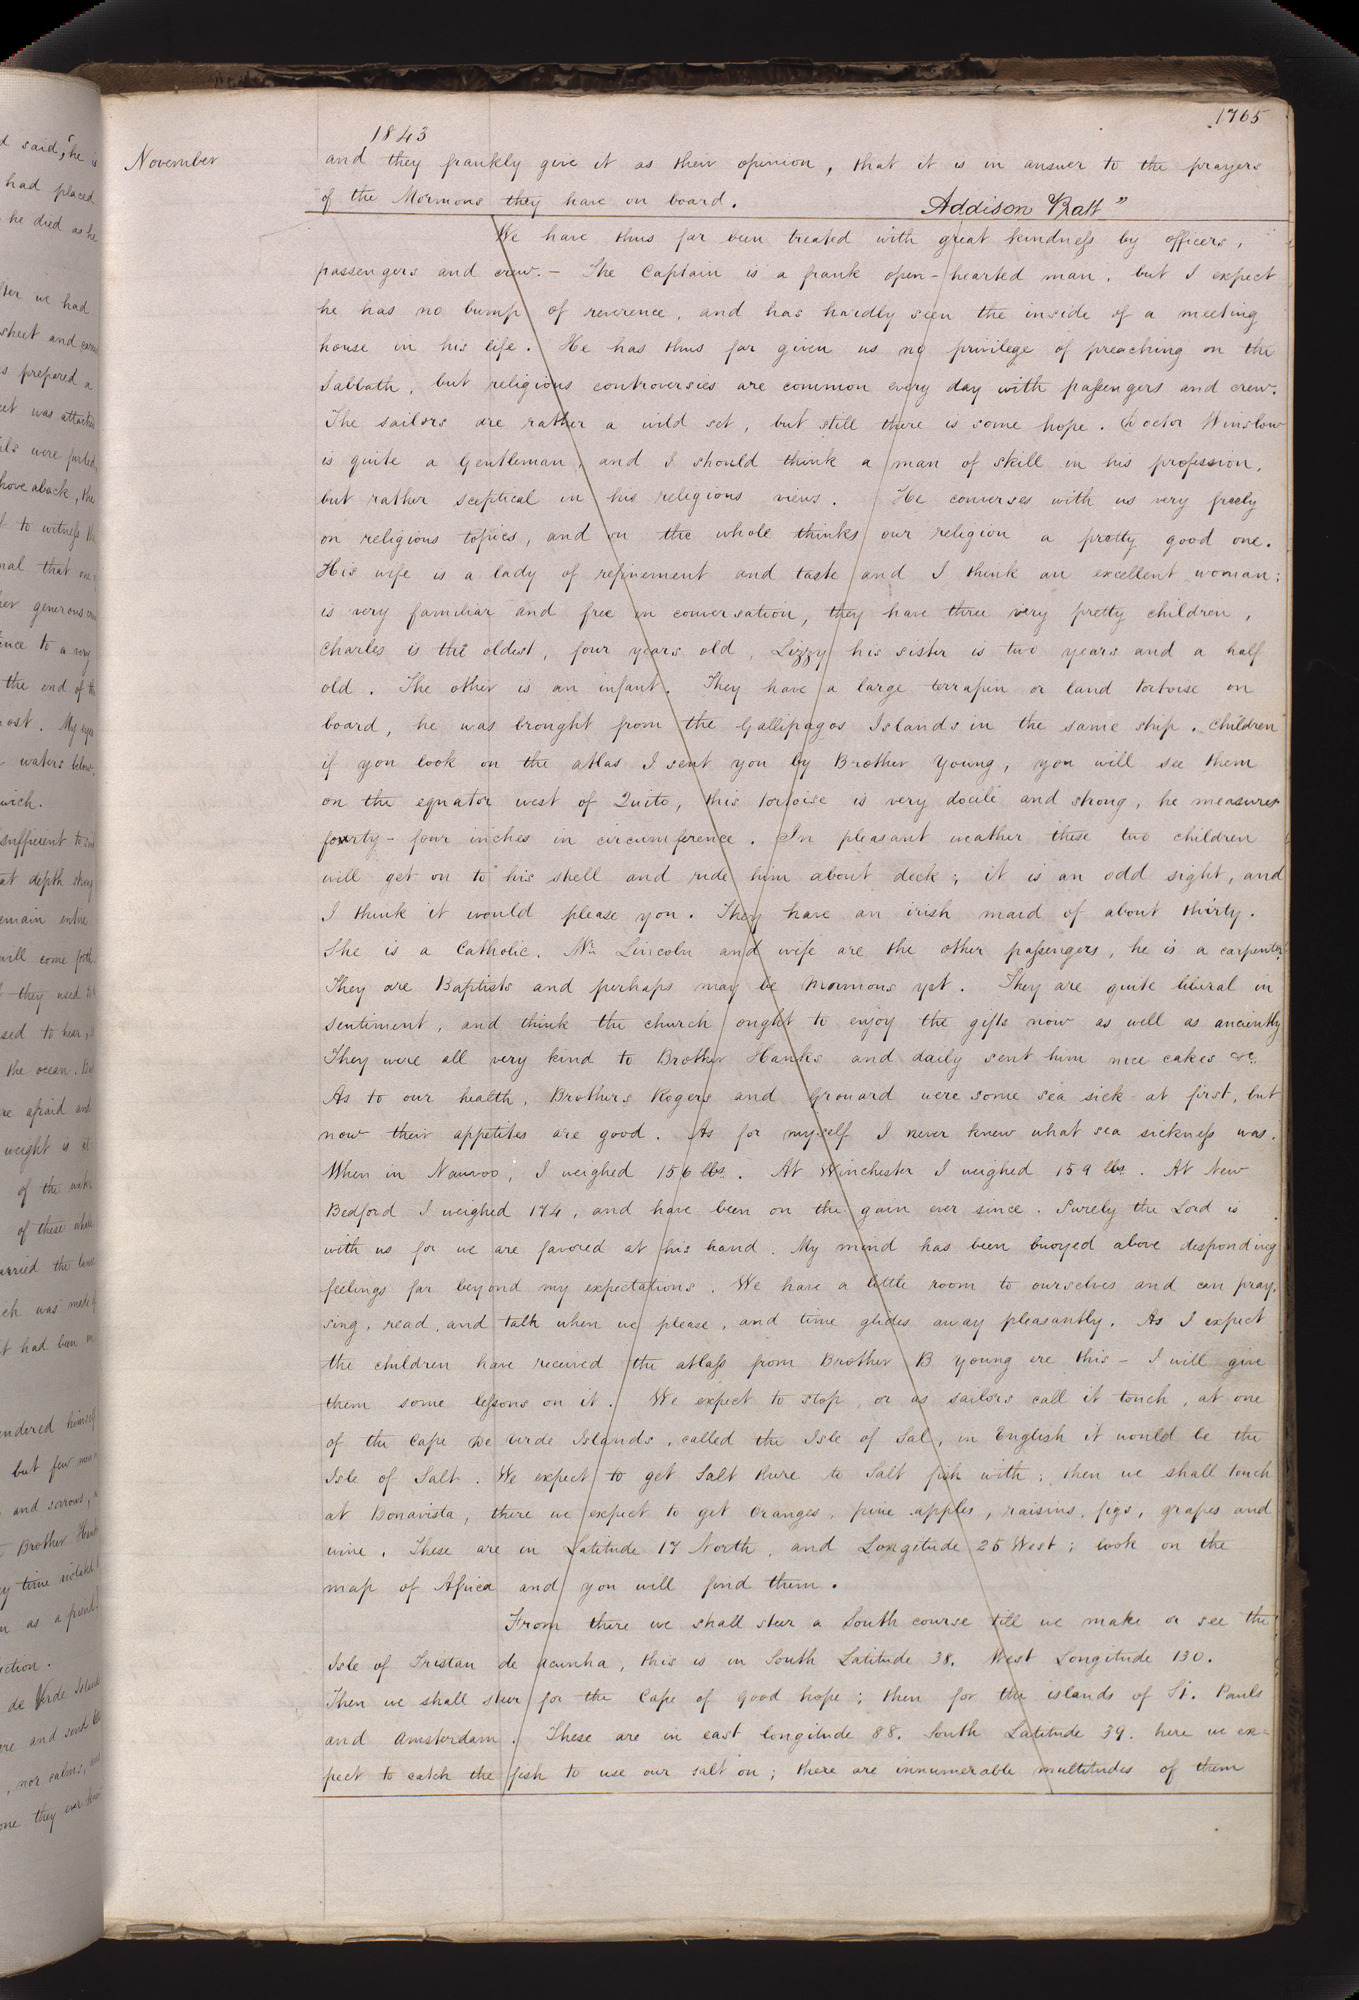 1765
1843
November
and they frankly give it as their opinion, that it is in answer to the prayers
of the Mormons they have on board. Addison Pratt"
We have thus far been treated with great kindness by officers,
passengers and crew. — The Captain is a frank open-hearted man, but I expect
he has no bump of reverence, and has hardly seen the inside of a meeting
house in his life. He has thus far given us no privilege of preaching on the
Sabbath, but religious controversies are common every day with passengers and crew.
The sailors are rather a wild set, but still there is some hope. Doctor Winslow
is quite a Gentleman, and I should think a man of skill in his profession,
but rather sceptical in his religious views. He converses with us very freely
on religious topics, and on the whole thinks our religion a pretty good one.
His wife is a lady of refinement and taste and I think an excellent woman;
is very familiar and free in conversation, they have three very pretty children,
Charles is the oldest, four years old, Lizzy his sister is two years and a half
old. The other is an infant. They have a large terrapin or land tortoise on
board, he was brought from the Gallipagos Islands in the same ship. Children
if you look on the atlas I sent you by Brother Young, you will see them
on the equator west of Quito, this tortoise is very docile and strong, he measures
forty-four inches in circumference. In pleasant weather these two children
will get on to his shell and ride him about deck; it is an odd sight, and
I think it would please you. They have an irish maid of about thirty.
She is a Catholic. Mr. Lincoln and wife are the other passengers, he is a carpenter.
They are Baptists and perhaps may be Mormons yet. They are quite liberal in
sentiment, and think the church ought to enjoy the gifts now as well as anciently
They were all very kind to Brother Hanks and daily sent him nice cakes &c.
As to our health, Brothers Rogers and Grouard were some sea sick at first, but
now their appetites are good. As for myself I never knew what sea sickness was.
When in Nauvoo, I weighed 156 lbs. At Winchester I weighed 159 lbs. At New
Bedford I weighed 174, and have been on the gain ever since. Surely the Lord is
with us for we are favored at his hand. My mind has been buoyed above desponding
feelings far beyond my expectations. We have a little room to ourselves and can pray,
sing, read, and talk when we please, and time glides away pleasantly. As I expect
the children have received the atlass from Brother B Young ere this — I will give
them some lessons on it. We expect to stop, or as sailors call it touch, at one
of the Cape De Verde Islands, called the Isle of Sal, in English it would be the
Isle of Salt. We expect to get Salt there to Salt fish with; then we shall touch
at Bonavista, there we expect to get Oranges, pine apples, raisins, figs, grapes and
wine. These are in Latitude 17 North, and Longitude 25 West; look on the
map of Africa and you will find them.
From there we shall steer a South course till we make or see the
Isle of Tristan de acunha, this is in South Latitude 38. West Longitude 130.
Then we shall steer for the Cape of good hope; then for the islands of St. Pauls
and Amsterdam. These are in east longitude 88. South Latitude 39. here we ex=
pect to catch the fish to use our salt on; there are innumerable multitudes of them